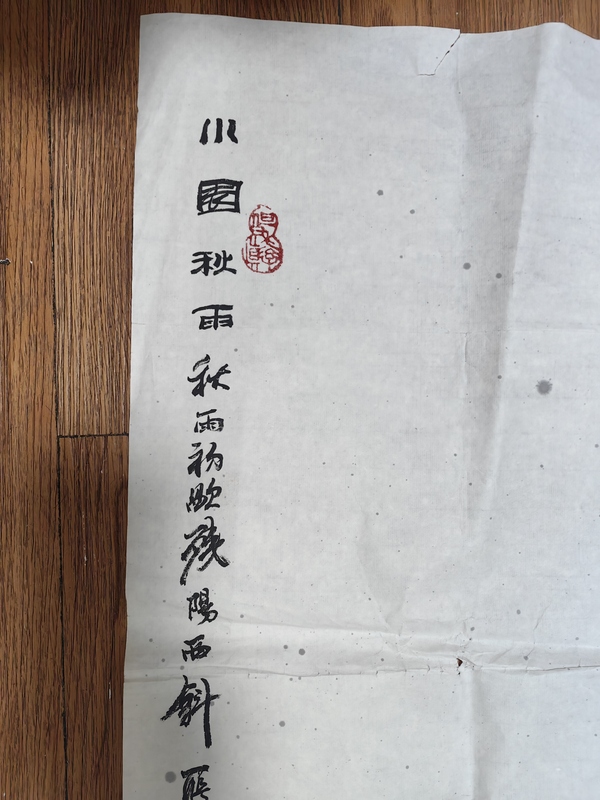 小園秋雨秋雨初歇殘陽西斜